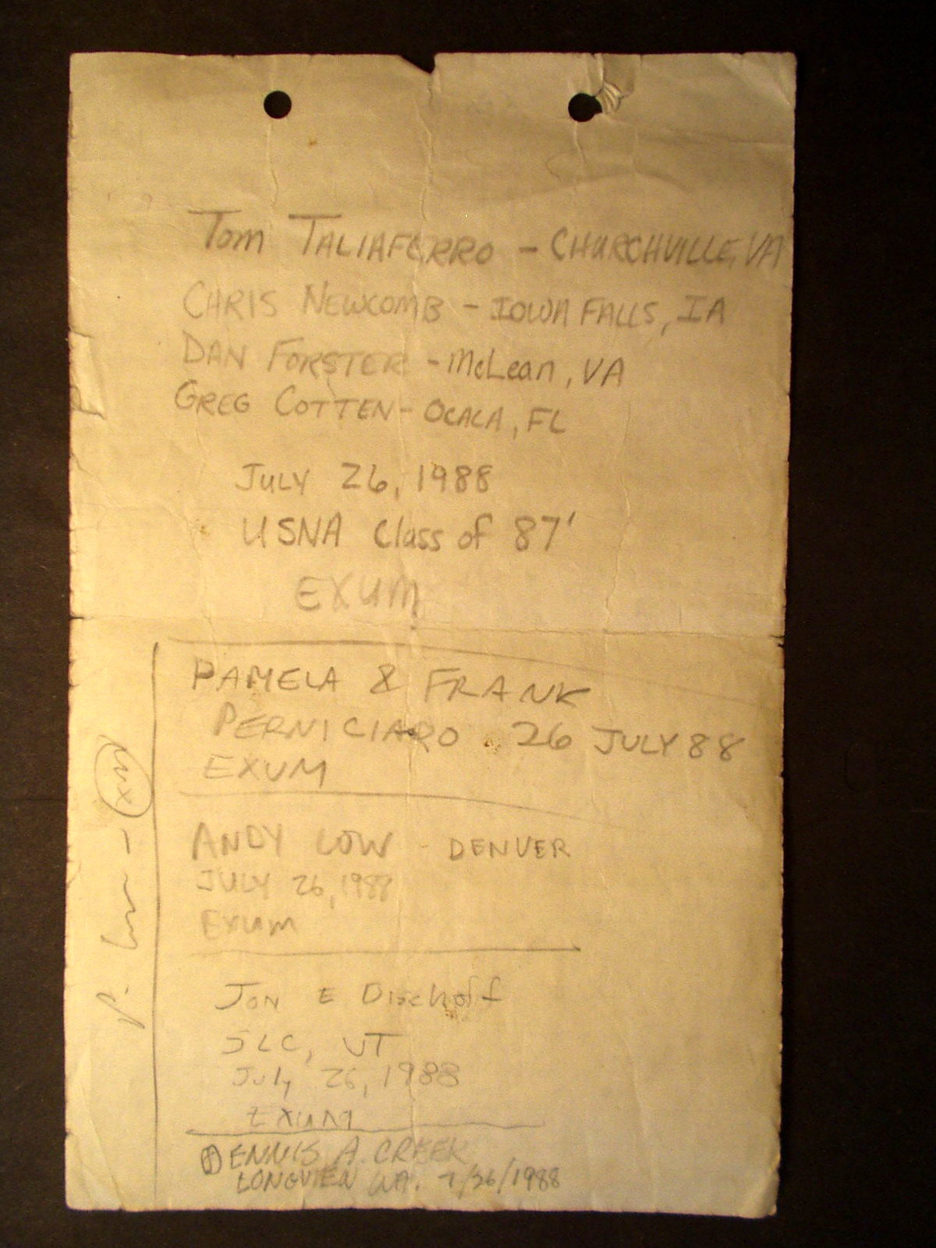 Tom TALIAFERRO - CHURCHVILLE, VA
CHRIS NEWCOMB - IOWA FALLS, IA
DAN FORSTER - McLean, VA
GREG COTTEN - OCALA, FL
JULY 26, 1988
USNA Class of 87'
EXUM
PAMELA & FRANK
PERNICIARO 26 JULY 88
EXUM
ANDY LOW - DENVER
JULY 26, 1988
EXUM
JON E Dischoff
SLC, UT
July 26, 1988
EXUM
DENNIS A. CREEK
LONGVIEW WA. 7/26/1988